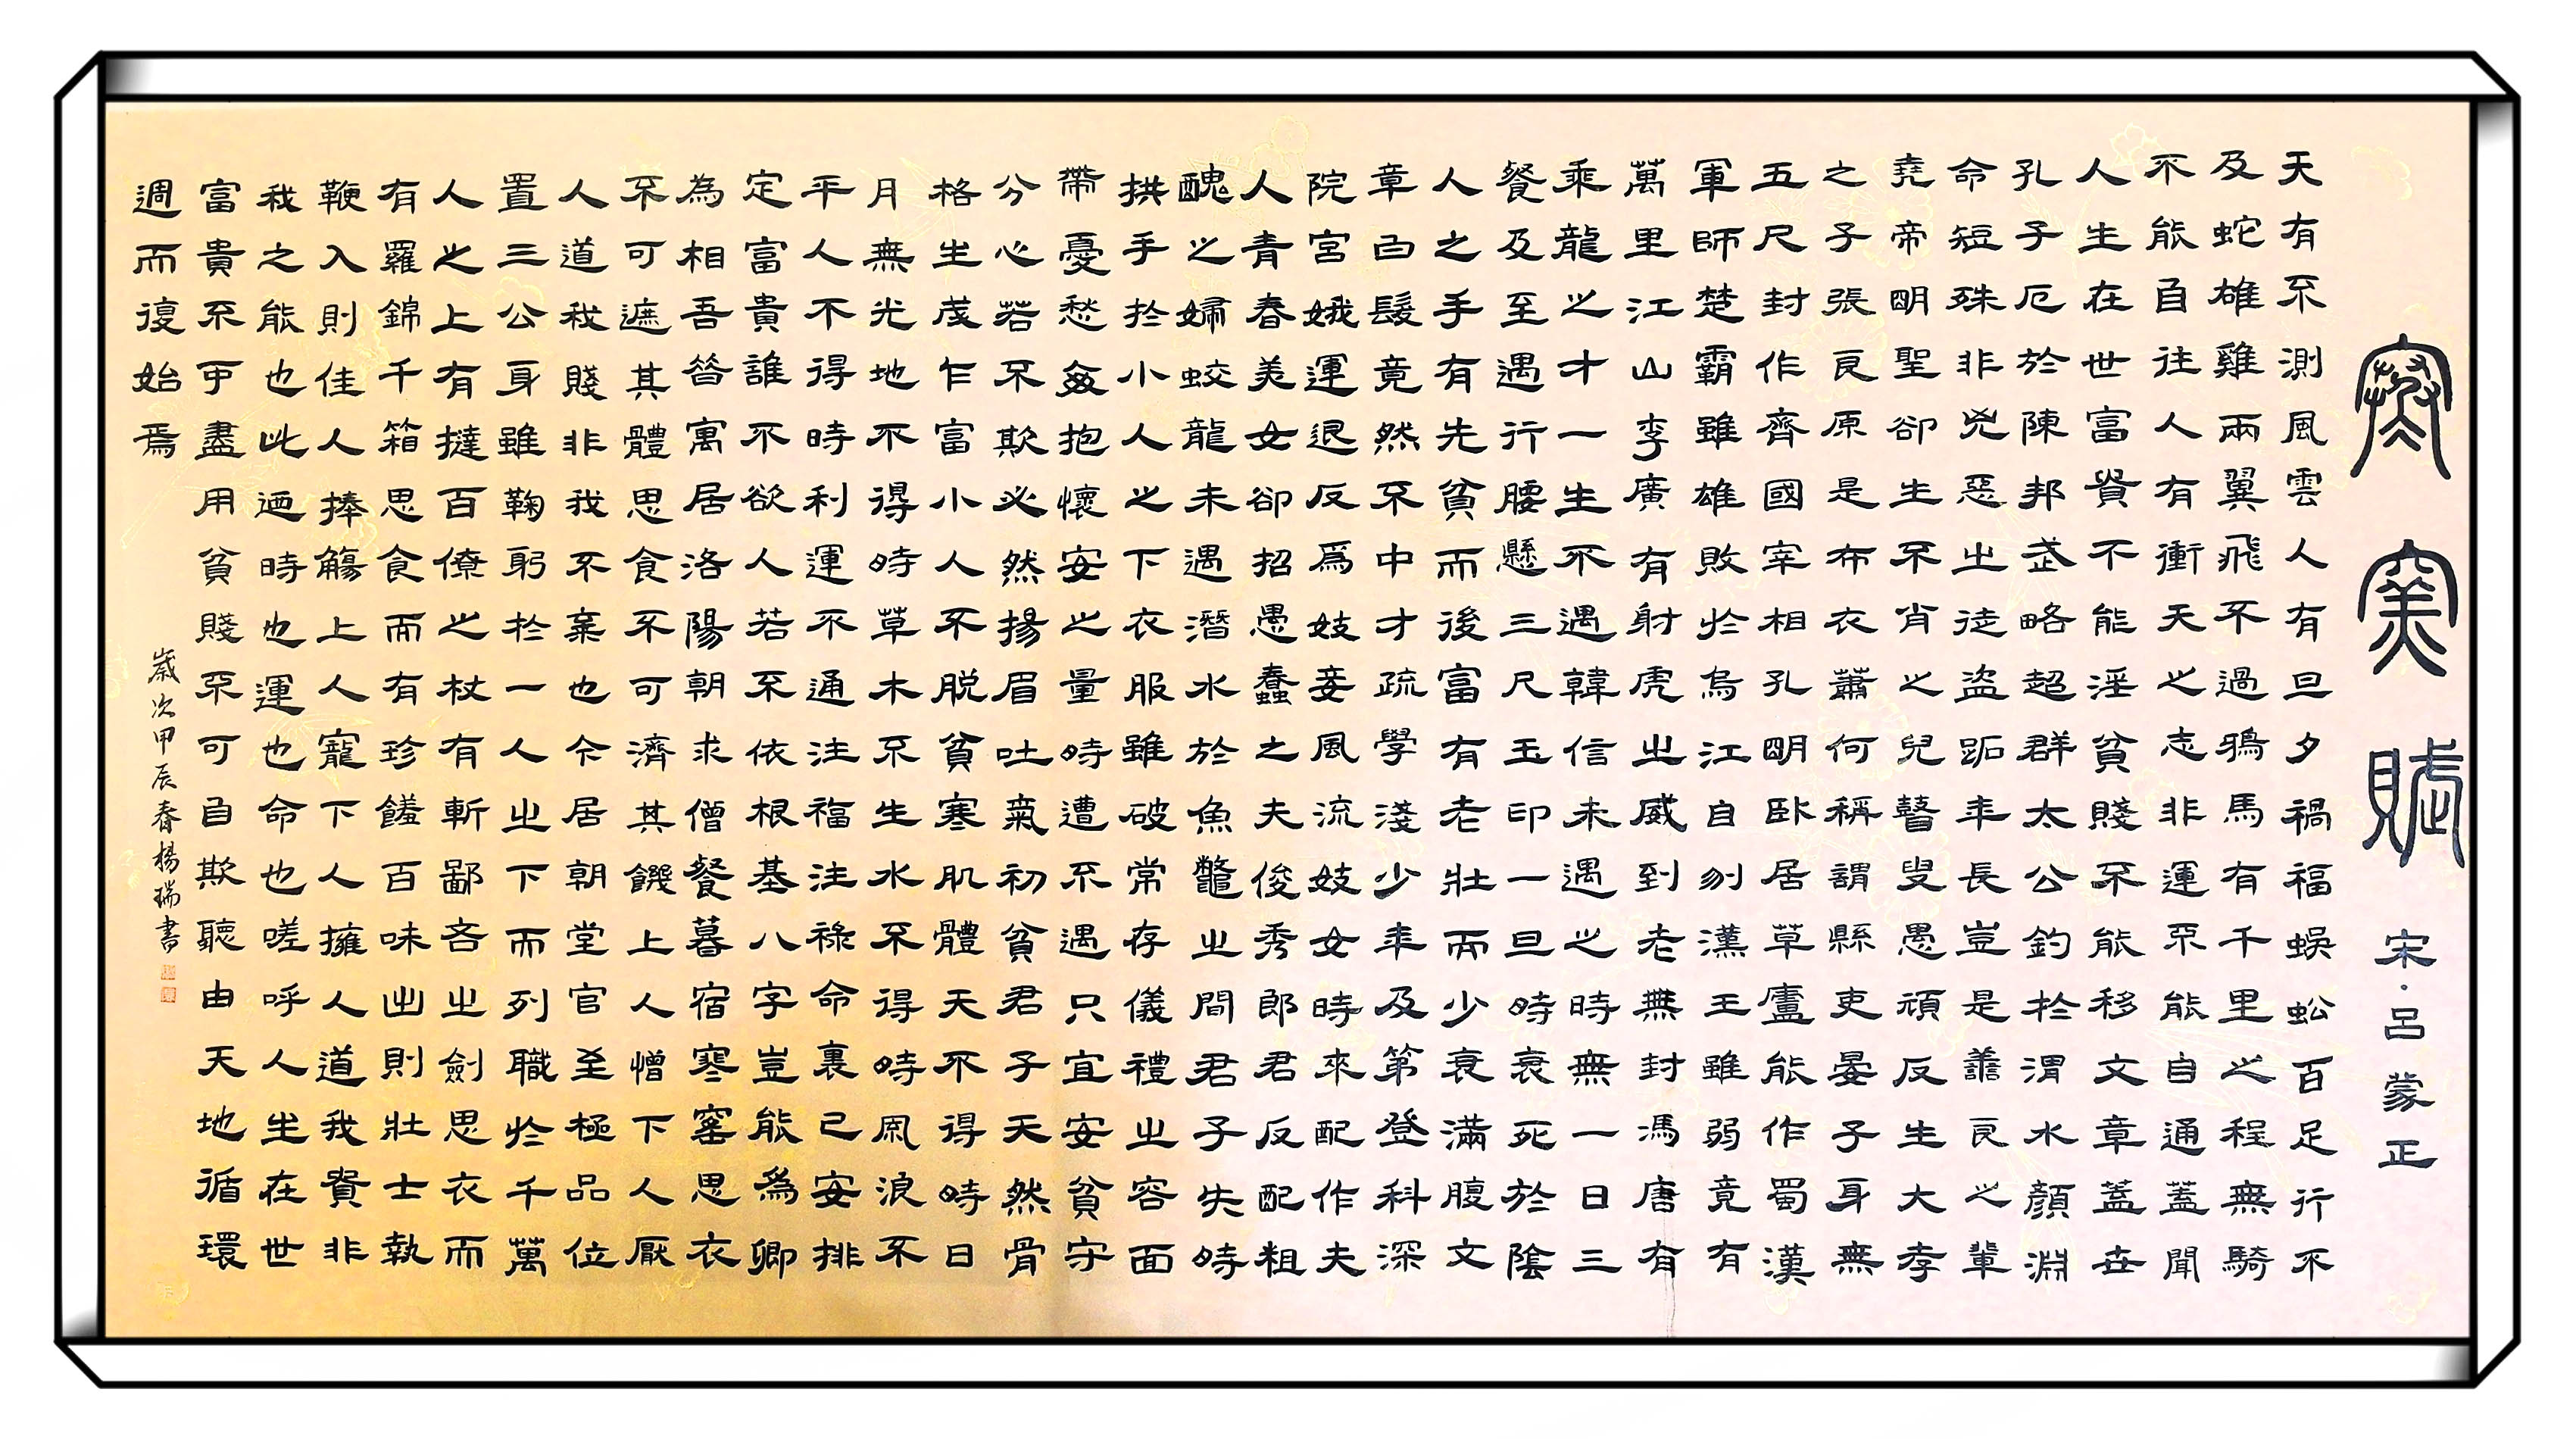 寒窯賦 宋·呂蒙正
天有不測風雲人有旦夕禍福蜈蚣百足行不
及蛇雄雞兩翼飛不過鴉馬有千里之程無騎
不能自往人有衝天之志非運不能自通蓋聞
人生在世富貴不能淫貧賤不能移文章蓋世
孔子厄於陳邦武略超群太公釣於渭水顏淵
命短殊非兇惡之徒盜跖年長豈是善良之輩
堯帝明聖卻生不肖之兒瞽叟愚頑反生大孝
之子張良原是布衣蕭何稱謂縣吏晏子身無
五尺封作齊國宰相孔明臥居草廬能作蜀漢
軍師楚霸雖雄敗於烏江自刎漢王雖弱竟有
萬里江山李廣有射虎之威到老無封馮唐有
乘龍之才一生不遇韓信未遇之時無一日三
餐及至遇行腰懸三尺玉印一旦時衰死於陰
人之手有先貧而後富有老壯而少衰滿腹文
章白髮竟然不中才疏學淺少年及第登科深
院宮娥運退反為妓妾風流妓女時來配作夫
人青春美女卻招愚蠢之夫俊秀郎君反配粗
醜之婦蛟龍未遇潛水於魚鱉之間君子失時
拱手於小人之下衣服雖破常存儀禮之容面
帶憂愁每抱懷安之量時遭不遇只宜安貧守
分心若不欺必然揚眉吐氣初貧君子天然骨
格生成乍富小人不脫貧寒肌體天不得時日
月無光地不得時草木不生水不得時風浪不
平人不得時利運不通注福注祿命裏已安排
定富貴誰不欲人若不依根基八字豈能為卿
為相吾昔寓居洛陽朝求僧餐暮宿寒窯思衣
不可遮其體思食不可濟其饑上人憎下人厭
人道我賤非我不棄也今居朝堂官至極品位
置三公身雖鞠躬於一人之下而列職於千萬
人之上有撻百僚之杖有斬鄙吝之劍思衣而
有羅錦千箱思食而有珍饈百味出則壯士執
鞭入則佳人捧觴上人寵下人擁人道我貴非
我之能也此迺時也運也命也嗟呼人生在世
富貴不可盡用貧賤不可自欺聽由天地循環
週而復始焉
歲次甲辰春楊瑞書